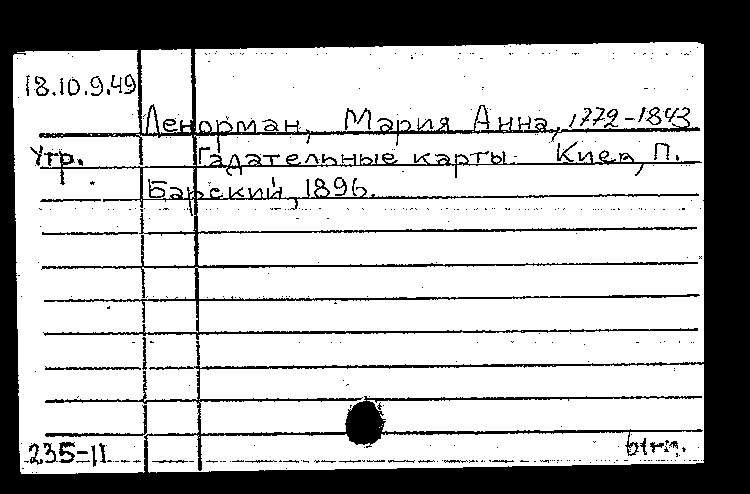 18.10.9.49
Ленорман, Мария Анна, 1772-1843
Утр. Гадательные карты. Киев, П.
Барский, 1896.
235-11